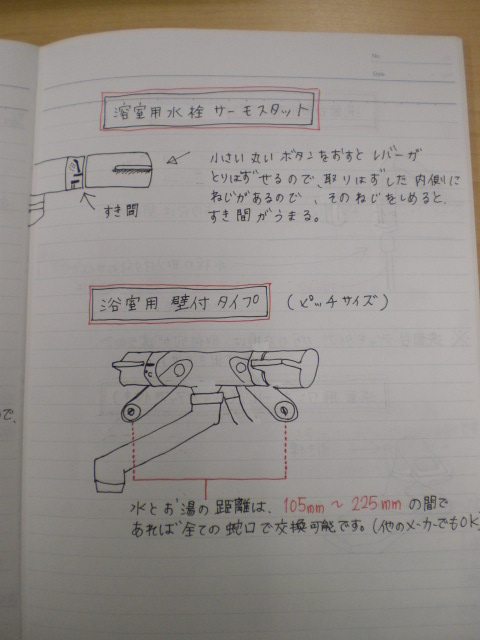 No.
Date
浴室用水栓 サーモスタット
小さい丸いボタンをおすと レバーが
とりはずせるので、取りはずした内側に
ねじがあるので、そのねじをしめると、
すき間がうまる。
すき間
浴室用 壁付タイプ (ピッチサイズ)
で、
水とお湯の距離は、105mm～225mmの間で
あれば全ての蛇口で交換可能です。(他のメーカーでもOK)